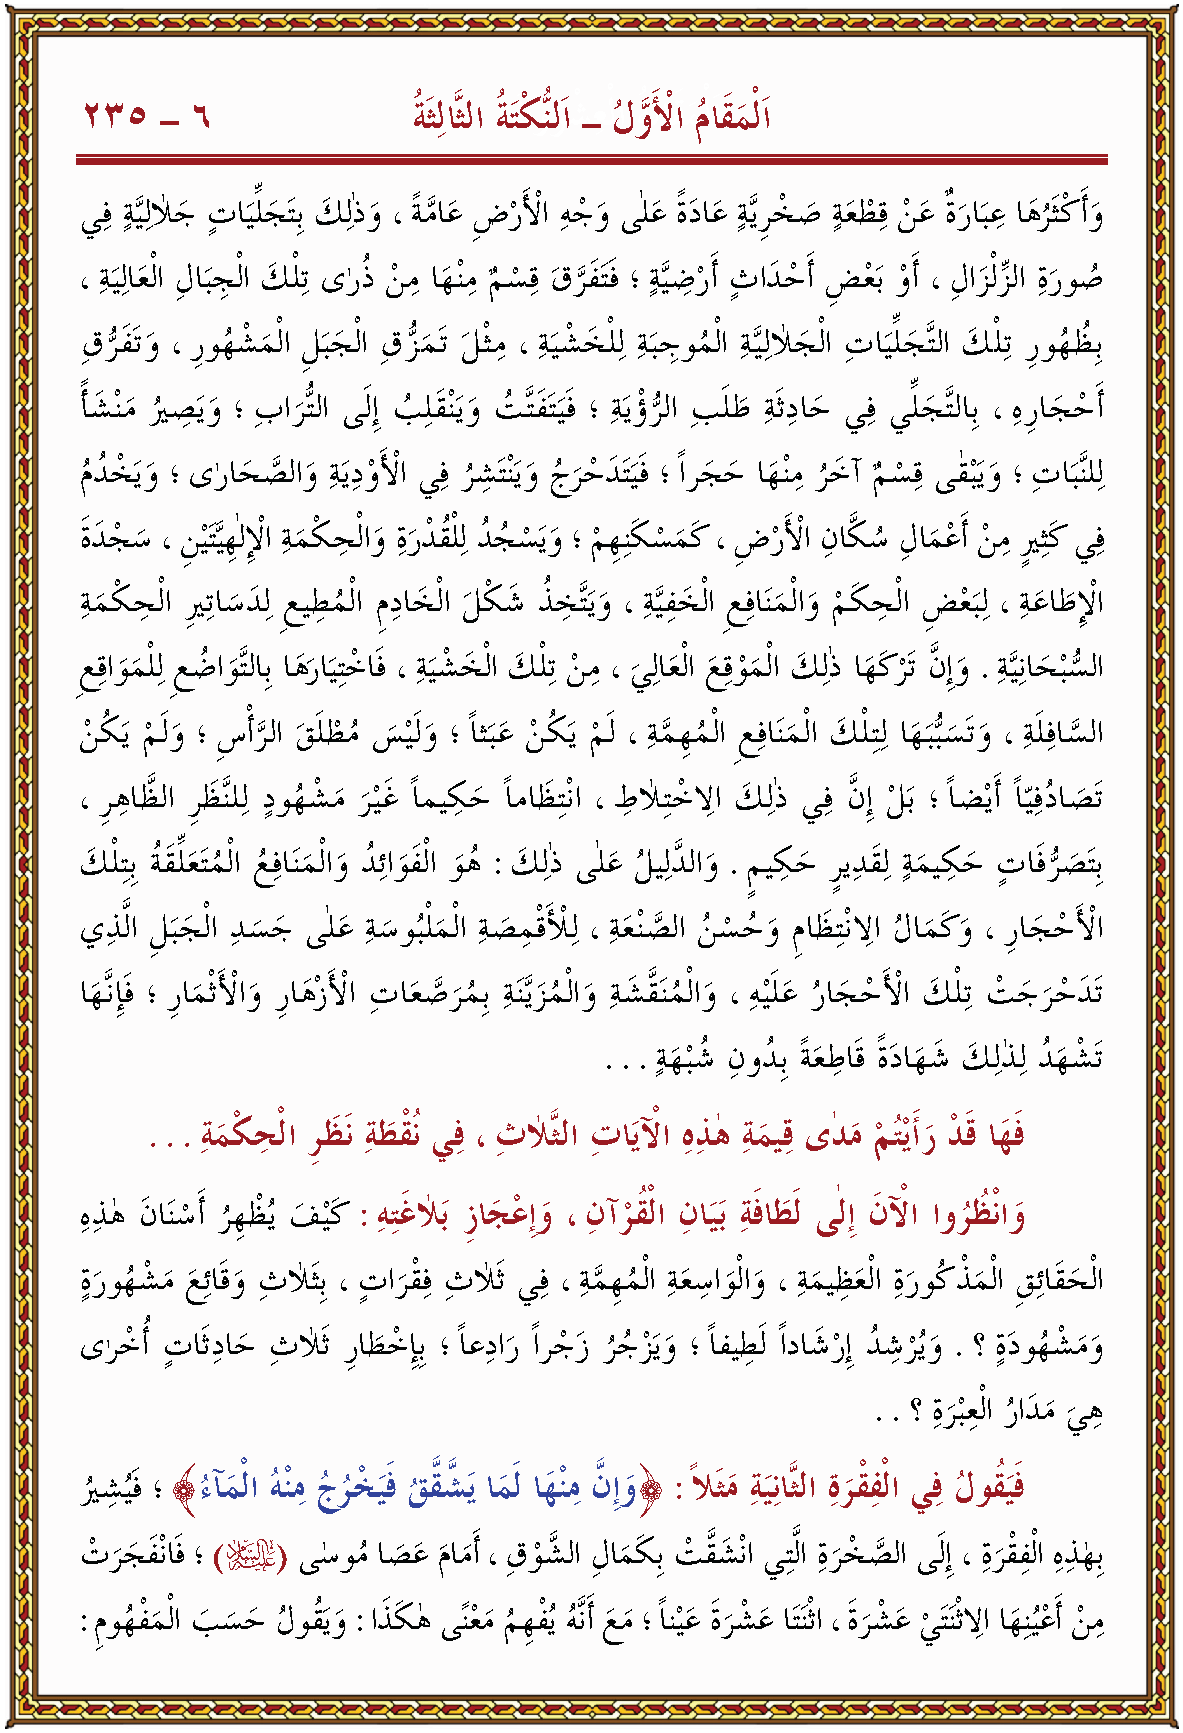 اَلْمَقَامُ الْأَوَّلُ ــ اَلنُّكْتَةُ الثَّالِثَةُ ٦ ــ ٢٣٥
وَأَكْثَرُهَا عِبَارَةٌ عَنْ قِطْعَةٍ صَخْرِيَّةٍ عَادَةً عَلٰى وَجْهِ الْأَرْضِ عَامَّةً ، وَذٰلِكَ بِتَجَلِّيَاتٍ جَلَالِيَّةٍ فِي
صُورَةِ الزِّلْزَالِ ، أَوْ بَعْضِ أَحْدَاثٍ أَرْضِيَّةٍ ؛ فَتَفَرَّقَ قِسْمٌ مِنْهَا مِنْ ذُرٰى تِلْكَ الْجِبَالِ الْعَالِيَةِ ،
بِظُهُورِ تِلْكَ التَّجَلِّيَاتِ الْجَلَالِيَّةِ الْمُوجِبَةِ لِلْخَشْيَةِ ، مِثْلَ تَمَزُّقِ الْجَبَلِ الْمَشْهُورِ ، وَتَفَرُّقِ
أَحْجَارِهِ ، بِالتَّجَلِّي فِي حَادِثَةِ طَلَبِ الرُّؤْيَةِ ؛ فَيَتَفَتَّتُ وَيَنْقَلِبُ إِلَى التُّرَابِ ؛ وَيَصِيرُ مَنْشَأً
لِلنَّبَاتِ ؛ وَيَبْقٰى قِسْمٌ آخَرُ مِنْهَا حَجَراً ؛ فَيَتَدَحْرَجُ وَيَنْتَشِرُ فِي الْأَوْدِيَةِ وَالصَّحَارٰى ؛ وَيَخْدُمُ
فِي كَثِيرٍ مِنْ أَعْمَالِ سُكَّانِ الْأَرْضِ ، كَمَسْكَنِهِمْ ؛ وَيَسْجُدُ لِلْقُدْرَةِ وَالْحِكْمَةِ الْإِلٰهِيَّتَيْنِ ، سَجْدَةَ
الْإِطَاعَةِ ، لِبَعْضِ الْحِكَمْ وَالْمَنَافِعِ الْخَفِيَّةِ ، وَيَتَّخِذُ شَكْلَ الْخَادِمِ الْمُطِيعِ لِدَسَاتِيرِ الْحِكْمَةِ
السُّبْحَانِيَّةِ . وَإِنَّ تَرْكَهَا ذٰلِكَ الْمَوْقِعَ الْعَالِيَ ، مِنْ تِلْكَ الْخَشْيَةِ ، فَاخْتِيَارَهَا بِالتَّوَاضُعِ لِلْمَوَاقِعِ
السَّافِلَةِ ، وَتَسَبُّبَهَا لِتِلْكَ الْمَنَافِعِ الْمُهِمَّةِ ، لَمْ يَكُنْ عَبَثاً ؛ وَلَيْسَ مُطْلَقَ الرَّأْسِ ؛ وَلَمْ يَكُنْ
تَصَادُفِيّاً أَيْضاً ؛ بَلْ إِنَّ فِي ذٰلِكَ الِاخْتِلَاطِ ، انْتِظَاماً حَكِيماً غَيْرَ مَشْهُودٍ لِلنَّظَرِ الظَّاهِرِ ،
بِتَصَرُّفَاتٍ حَكِيمَةٍ لِقَدِيرٍ حَكِيمٍ . وَالدَّلِيلُ عَلٰى ذٰلِكَ : هُوَ الْفَوَائِدُ وَالْمَنَافِعُ الْمُتَعَلِّقَةُ بِتِلْكَ
الْأَحْجَارِ ، وَكَمَالُ الِانْتِظَامِ وَحُسْنُ الصَّنْعَةِ ، لِلْأَقْمِصَةِ الْمَلْبُوسَةِ عَلٰى جَسَدِ الْجَبَلِ الَّذِي
تَدَحْرَجَتْ تِلْكَ الْأَحْجَارُ عَلَيْهِ ، وَالْمُنَقَّشَةِ وَالْمُزَيَّنَةِ بِمُرَصَّعَاتِ الْأَزْهَارِ وَالْأَثْمَارِ ؛ فَإِنَّهَا
تَشْهَدُ لِذٰلِكَ شَهَادَةً قَاطِعَةً بِدُونِ شُبْهَةٍ . . .
فَهَا قَدْ رَأَيْتُمْ مَدٰى قِيمَةِ هٰذِهِ الْآيَاتِ الثَّلَاثِ ، فِي نُقْطَةِ نَظَرِ الْحِكْمَةِ . . .
وَانْظُرُوا الْآنَ إِلٰى لَطَافَةِ بَيَانِ الْقُرْآنِ ، وَإِعْجَازِ بَلَاغَتِهِ : كَيْفَ يُظْهِرُ أَسْنَانَ هٰذِهِ
الْحَقَائِقِ الْمَذْكُورَةِ الْعَظِيمَةِ ، وَالْوَاسِعَةِ الْمُهِمَّةِ ، فِي ثَلَاثِ فِقْرَاتٍ ، بِثَلَاثِ وَقَائِعَ مَشْهُورَةٍ
وَمَشْهُودَةٍ ؟ . وَيُرْشِدُ إِرْشَاداً لَطِيفاً ؛ وَيَزْجُرُ زَجْراً رَادِعاً ؛ بِإِخْطَارِ ثَلَاثِ حَادِثَاتٍ أُخْرٰى
هِيَ مَدَارُ الْعِبْرَةِ ؟ . .
فَيَقُولُ فِي الْفِقْرَةِ الثَّانِيَةِ مَثَلاً : ﴿وَإِنَّ مِنْهَا لَمَا يَشَّقَّقُ فَيَخْرُجُ مِنْهُ الْمَآءُ﴾ ؛ فَيُشِيرُ
بِهٰذِهِ الْفِقْرَةِ ، إِلَى الصَّخْرَةِ الَّتِي انْشَقَّتْ بِكَمَالِ الشَّوْقِ ، أَمَامَ عَصَا مُوسٰى (عليه السلام) ؛ فَانْفَجَرَتْ
مِنْ أَعْيُنِهَا الِاثْنَتَيْ عَشْرَةَ ، اثْنَتَا عَشْرَةَ عَيْناً ؛ مَعَ أَنَّهُ يُفْهِمُ مَعْنىً هٰكَذَا : وَيَقُولُ حَسَبَ الْمَفْهُومِ :